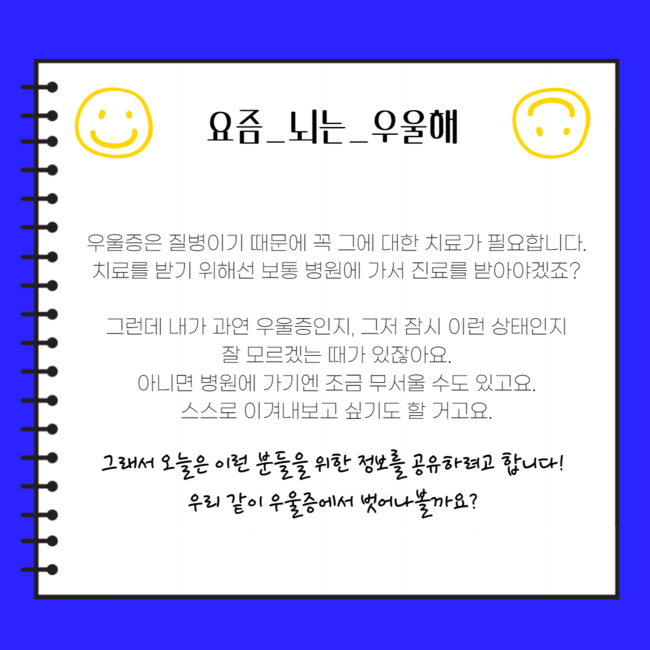 요즘_뇌는_우울해
우울증은 질병이기 때문에 꼭 그에 대한 치료가 필요합니다.
치료를 받기 위해선 보통 병원에 가서 진료를 받아야겠죠?
그런데 내가 과연 우울증인지, 그저 잠시 이런 상태인지
잘 모르겠는 때가 있잖아요.
아니면 병원에 가기엔 조금 무서울 수도 있고요.
스스로 이겨내보고 싶기도 할 거고요.
그래서 오늘은 이런 분들을 위한 정보를 공유하려고 합니다!
우리 같이 우울증에서 벗어나볼까요?